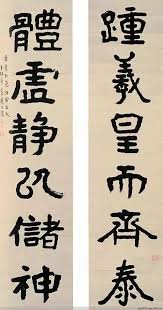 踵羲皇而齊泰
體虛靜以儲神